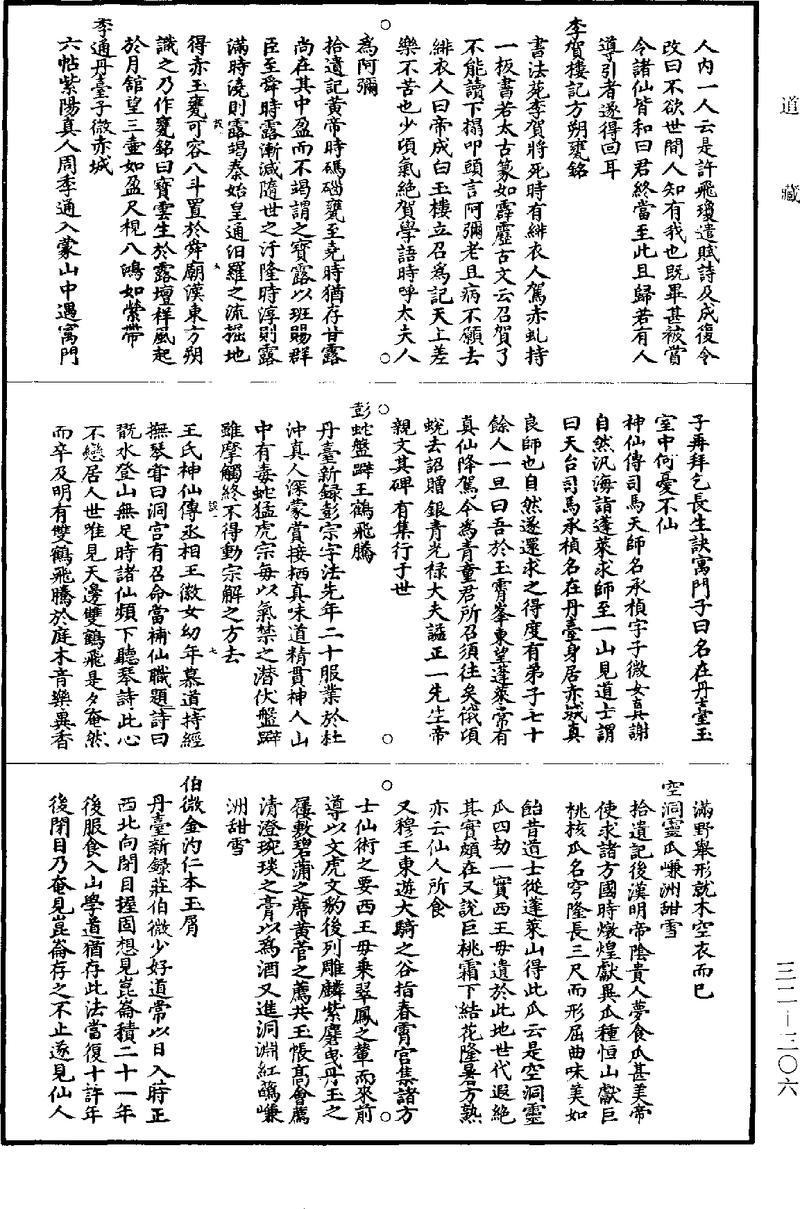 道藏
人內一人云是許飛瓊遣賦詩及成復令
改曰不欲世間人知有我也既畢甚被賞
令諸仙皆和曰君終當至此且歸若有人
導引者遂得回耳
李賀樓記方朔甕銘
書法苑李賀將死時有緋衣人駕赤虬持
一板書若太古篆如霹靂古文云召賀了
不能讀下榻叩頭言阿彌老且病不願去
緋衣人曰帝成白玉樓立召為記天上差
樂不苦也少頃氣絕賀學語時呼太夫人
為阿彌
拾遺記黃帝時碼碯甕至堯時猶存甘露
尚在其中盈而不竭謂之寶露以班賜群
臣至舜時露漸減隨世之汙隆時淳則露
滿時澆則露竭秦始皇通汨羅之流掘地
得赤玉甕可容八斗置於舜廟漢東方朔
識之乃作甕銘曰寶雲生於露壇祥風起
於月館望三壺如盈尺視八鴻如縈帶
李通丹臺子微赤城
六帖紫陽真人周季通入蒙山中遇寓門
子再拜乞長生訣寓門子曰名在丹臺玉
室中何憂不仙
神仙傳司馬天師名承楨字子微女真謝
自然汎海詣蓬萊求師至一山見道士謂
曰天台司馬承楨名在丹臺身居赤城真
良師也自然遂還求之得度有弟子七十
餘人一旦曰吾於玉霄峯東望蓬萊常有
真仙降駕今為青童君所召須往矣俄頃
蛻去詔贈銀青光祿大夫諡正一先生帝
親文其碑有集行于世
彭蛇盤辟王鶴飛騰
丹臺新錄彭宗字法先年二十服業於杜
沖真人深蒙賞接栖真味道精貫神人山
中有毒蛇猛虎宗每以氣禁之潛伏盤辟
雖摩觸終不得動宗解之方去
王氏神仙傳丞相王徽女幼年慕道持經
撫琴甞曰洞宮有召命當補仙職題詩曰
翫水登山無足時諸仙頻下聽琴詩此心
不戀居人世唯見天邊雙鶴飛是夕奄然
而卒及明有雙鶴飛騰於庭木音樂異香
滿野舉形就木空衣而已
空洞靈瓜嵰洲甜雪
拾遺記後漢明帝陰貴人夢食瓜甚美帝
使求諸方國時燉煌獻異瓜種恒山獻巨
桃核瓜名穹隆長三尺而形屈曲味美如
飴昔道士從蓬萊山得此瓜云是空洞靈
瓜四劫一實西王母遺於此地世代遐絕
其實頗在又說巨桃霜下結花隆暑方熟
亦云仙人所食
又穆王東遊大騎之谷指春霄宮集諸方
士仙術之要西王母乘翠鳳之輦而來前
導以文虎文豹後列雕麟紫麏曳丹玉之
屨敷碧蒲之蓆黃菅之薦共玉帳高會薦
清澄琬琰之膏以為酒又進洞淵紅蘤嵰
洲甜雪
伯微金汋仁本玉屑
丹臺新錄莊伯微少好道常以日入時正
西北向閉目握固想見崑崙積二十一年
後服食入山學道猶存此法當復十許年
後閉目乃奄見崑崙存之不止遂見仙人
三二—三〇六